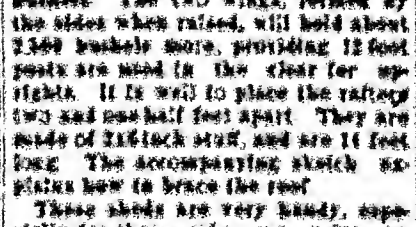 the sides when raised, will hold about
2,500 bushels more, providing 12 foot
posts are used in the clear for up-
rights. It is well to place the rafters
two and one half feet apart. They are
made of 2x6 inch stuff, and are 14 feet
long. The accompanying sketch ex-
plains how to brace the roof.
These sheds are very handy,